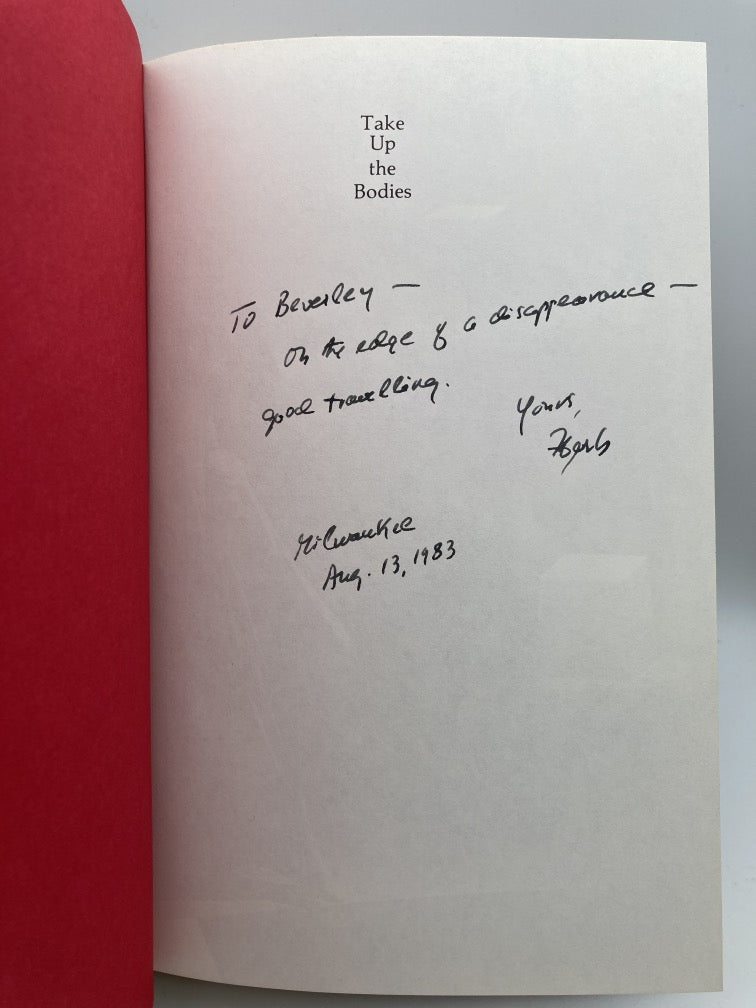 Take
Up
the
Bodies
To Beverley —
On the edge of a disappearance —
good travelling.
Yours,
Herb
Milwaukee
Aug. 13, 1983